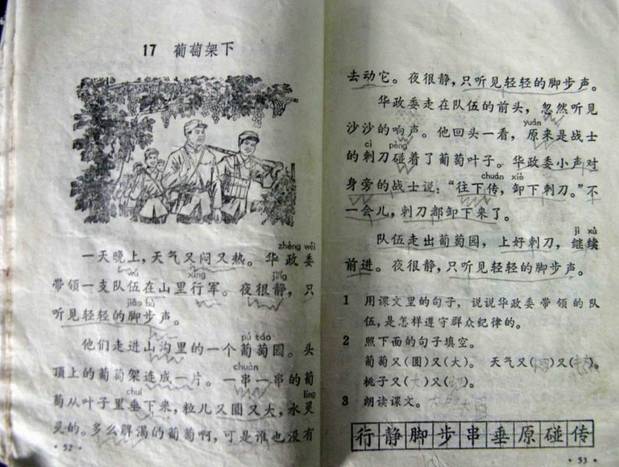 17 葡萄架下
zhèng wěi
一天晚上，天气又闷又热。华政委
xíng jìng
带领一支队伍在山里行军。夜很静，只
jiǎo bù
听见轻轻的脚步声。
pú táo
他们走进山沟里的一个葡萄园。头
chuàn
顶上的葡萄架连成一片。一串一串的葡
chuí líng
萄从叶子里垂下来，粒儿又圆又大，水灵
灵的。多么解渴的葡萄啊，可是谁也没有
·52·
去动它。夜很静，只听见轻轻的脚步声。
华政委走在队伍的前头，忽然听见
yuán
沙沙的响声。他回头一看，原来是战士
cì pèng
的刺刀碰着了葡萄叶子。华政委小声对
chuán xiè
身旁的战士说：“往下传，卸下刺刀。”不
一会儿，刺刀都卸下来了。
jì xù
队伍走出葡萄园，上好刺刀，继续
前进。夜很静，只听见轻轻的脚步声。
1 用课文里的句子，说说华政委带领的队
伍，是怎样遵守群众纪律的。
2 照下面的句子填空。
葡萄又(圆)又(大)。 天气又( )又( )。
桃子又( )又( )。
3 朗读课文。
行静脚步串垂原碰传
·53·